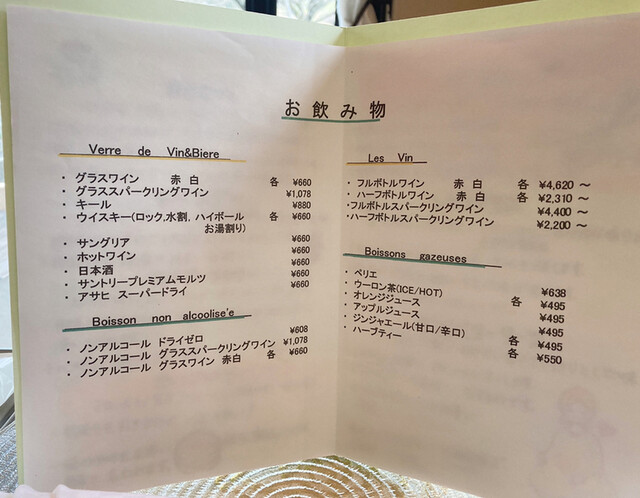 お飲み物
Verre de Vin&Biere
・ グラスワイン 赤 白 各 ¥660
・ グラススパークリングワイン ¥1,078
・ キール ¥880
・ ウイスキー(ロック,水割, ハイボール 各 ¥660
お湯割り)
・ サングリア ¥660
・ ホットワイン ¥660
・ 日本酒 ¥660
・ サントリープレミアムモルツ ¥660
・ アサヒ スーパードライ ¥660
Boisson non alcoolise'e
・ ノンアルコール ドライゼロ ¥608
・ ノンアルコール グラススパークリングワイン ¥1,078
・ ノンアルコール グラスワイン 赤白 各 ¥660
Les Vin
・ フルボトルワイン 赤 白 各 ¥4,620 ～
・ ハーフボトルワイン 赤 白 各 ¥2,310 ～
・フルボトルスパークリングワイン ¥4,400 ～
・ハーフボトルスパークリングワイン ¥2,200 ～
Boissons gazeuses
・ ペリエ ¥638
・ ウーロン茶(ICE/HOT) 各 ¥495
・ オレンジジュース ¥495
・ アップルジュース ¥495
・ ジンジャエール(甘口/辛口) 各 ¥495
・ ハーブティー 各 ¥550